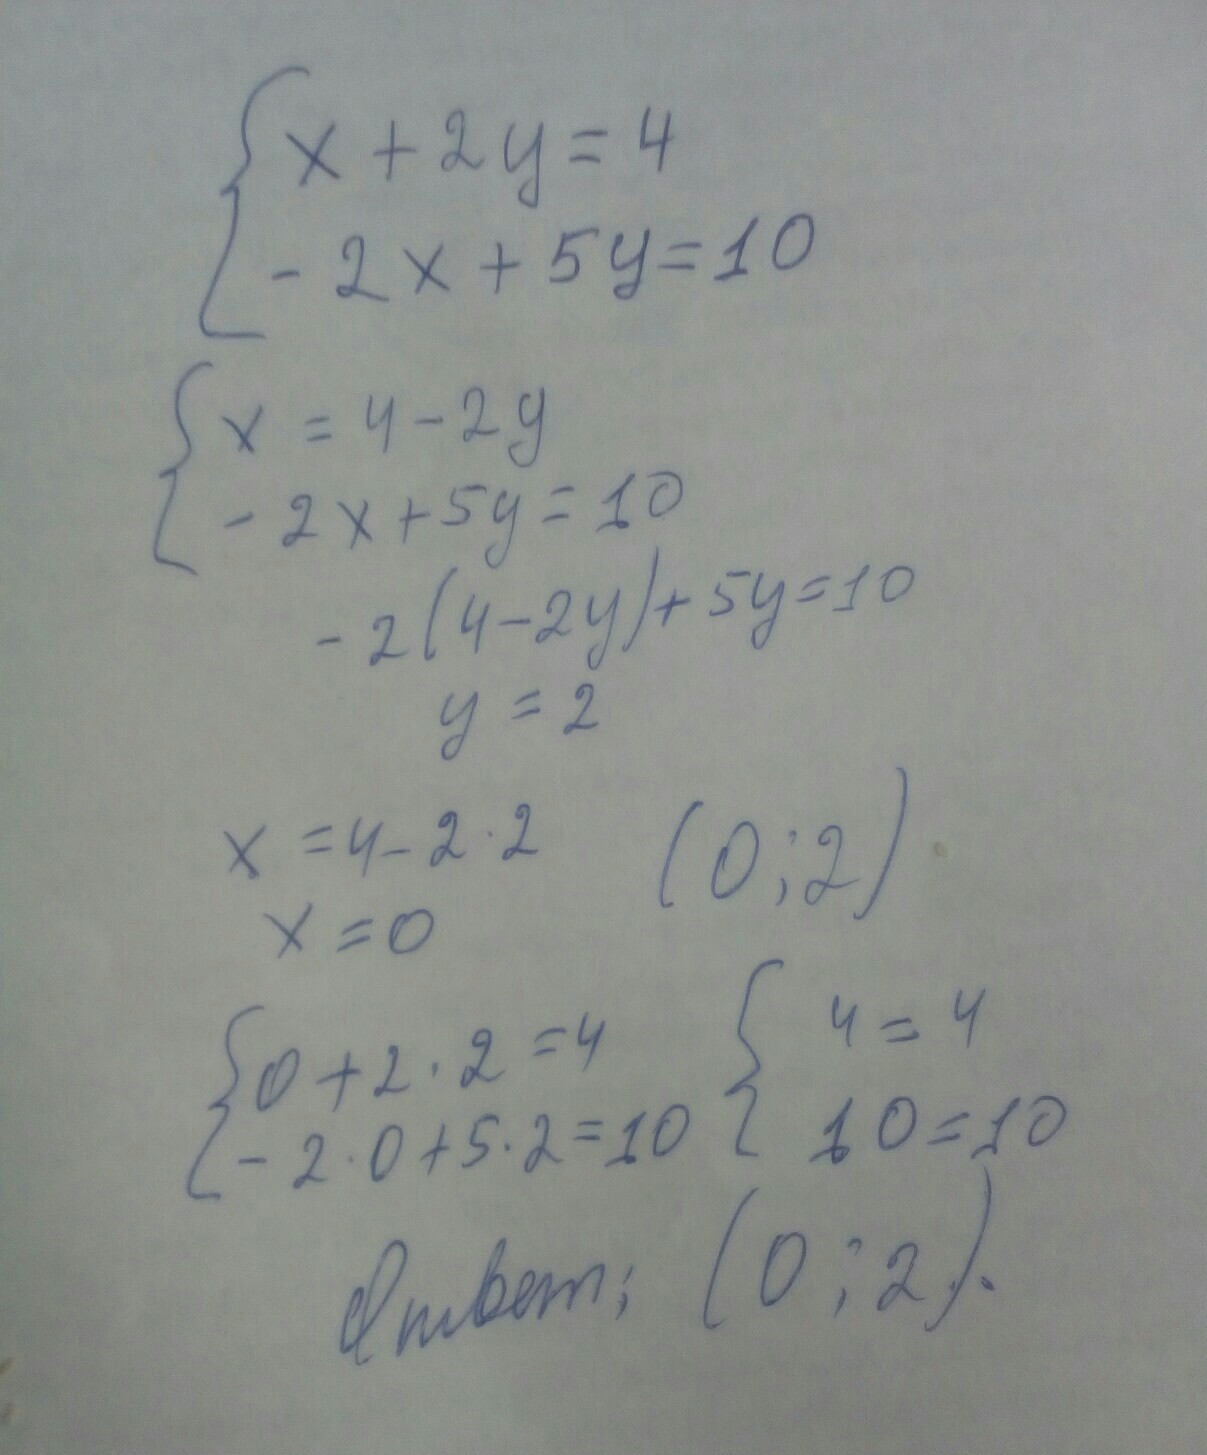 x + 2y = 4
- 2x + 5y = 10
x = 4 - 2y
- 2x + 5y = 10
- 2(4 - 2y) + 5y = 10
y = 2
x = 4 - 2 · 2
(0 ; 2)
x = 0
0 + 2 · 2 = 4
- 2 · 0 + 5 · 2 = 10
4 = 4
10 = 10
Ответ: (0 ; 2).